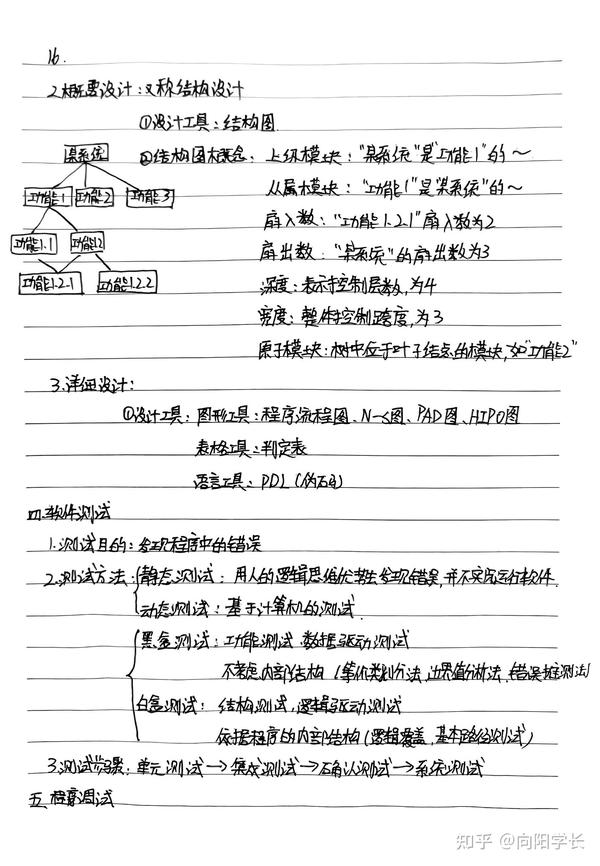 16.
2.概要设计：又称结构设计
①设计工具：结构图
某系统
②结构图概念：上级模块："某系统"是"功能1"的～
功能1 功能2 功能3
从属模块："功能1"是"某系统"的～
扇入数："功能1.2.1"扇入数为2
功能1.1 功能1.2
扇出数："某系统"的扇出数为3
功能1.2.1 功能1.2.2
深度：表示控制层数，为4
宽度：整体控制跨度，为3
原子模块：树中位于叶子结点的模块，如"功能2"
3.详细设计：
①设计工具：图形工具：程序流程图、N-S图、PAD图、HIPO图
表格工具：判定表
语言工具：PDL（伪码）
四.软件测试
1.测试目的：发现程序中的错误
2.测试方法：静态测试：用人的逻辑思维优势去发现错误，并不实际运行软件.
动态测试：基于计算机的测试.
黑盒测试：功能测试.数据驱动测试
不考虑内部结构（等价类划分法，边界值分析法，错误推测法）
白盒测试：结构测试，逻辑驱动测试
依据程序的内部结构（逻辑覆盖，基本路径测试）
3.测试步骤：单元测试→集成测试→确认测试→系统测试
五.程序调试
知乎 @向阳学长